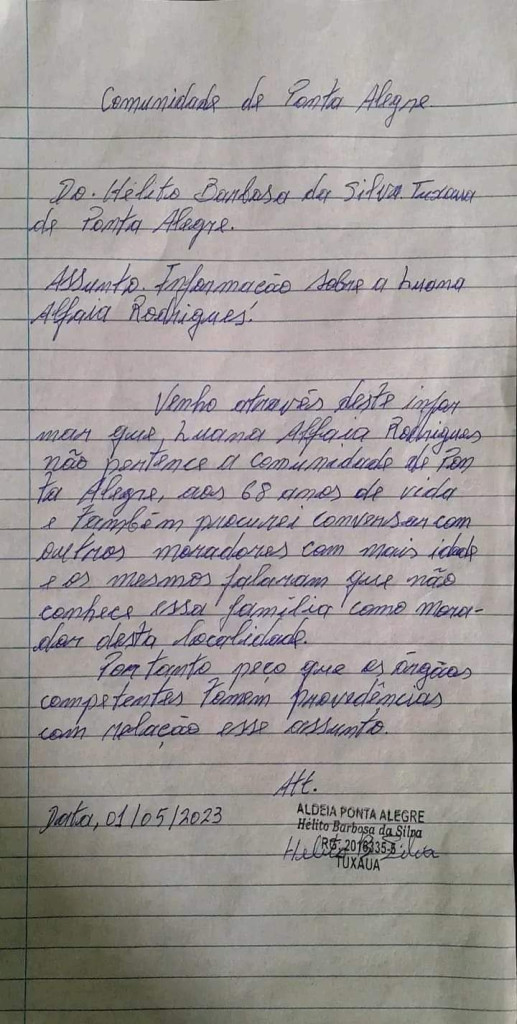 Comunidade de Ponta Alegre
Do. Hélito Barbosa da Silva. Tuxaua
de Ponta Alegre.
Assunto. Informação sobre a Luana
Alfaia Rodrigues!
Venho através deste infor
mar que, Luana Alfaia Rodrigues
não pertence a comunidade de Pon
ta Alegre, aos 68 anos de vida
e também procurei conversar com
outros moradores com mais idade
e os mesmos falaram que não
conhece essa família como mora-
dor desta localidade.
Portanto peço que os órgãos
competentes tomem providências
com relação esse assunto.
Att.
Data, 01/05/2023
ALDEIA PONTA ALEGRE
Hélito Barbosa da Silva
RG:
Helito B. Silva
TUXAUA